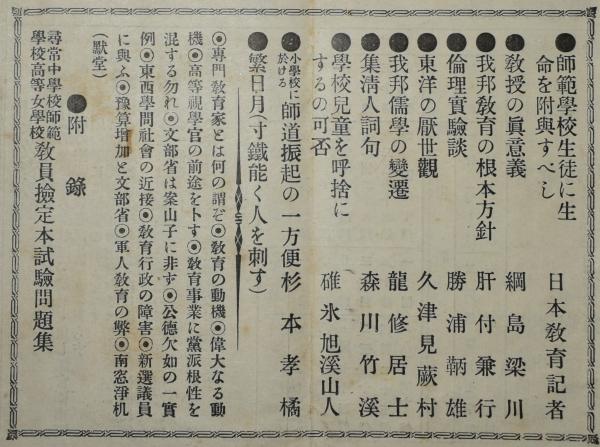 ●師範學校生徒に生命を附與すべし　日本教育記者
●教授の眞意義　綱島梁川
●我邦教育の根本方針　肝付兼行
●倫理實驗談　勝浦鞆雄
●東洋の厭世觀　久津見蕨村
●我邦儒學の變遷　龍修居士
●集清人詞句　森川竹溪
●學校兒童を呼捨にするの可否　碓氷旭溪山人
●小學校に於ける師道振起の一方便　杉本孝橘
●繁日月（寸鐵能く人を刺す）
◉專門教育家とは何の謂ぞ◉教育の動機◉偉大なる動
機◉高等視學官の前途を卜す◉教育事業に黨派根性を
混する勿れ◉文部省は案山子に非ず◉公德欠如の一實
例◉東西學問社會の近接◉教育行政の障害◉新選議員
に與ふ◉豫算增加と文部省◉軍人教育の弊◉南窓淨机
（默堂）
●附錄
尋常中學校師範學校高等女學校教員檢定本試驗問題集